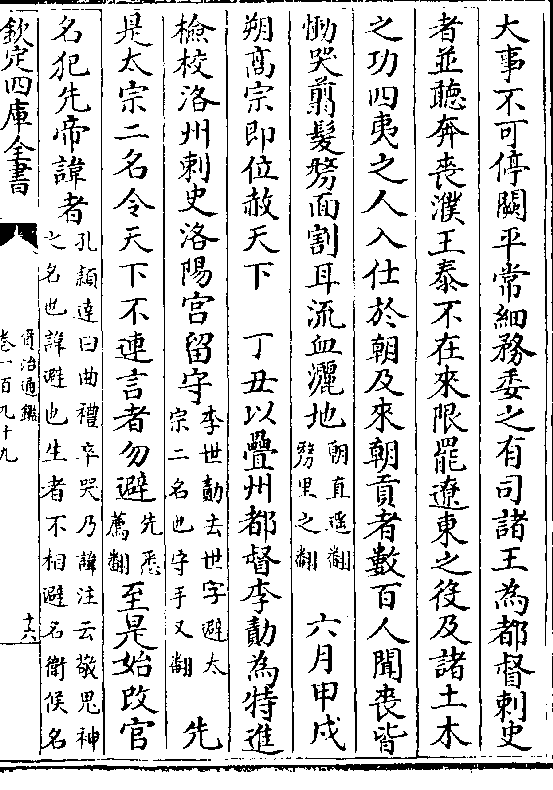 大事不可停闕平常細務委之有司諸王為都督刺史
者並聽奔喪濮王泰不在來限罷遼東之役及諸土木
之功四夷之人入仕於朝及來朝貢者數百人聞喪皆
慟哭翦髮剺面割耳流血灑地朝直遥翻剺里之翻六月甲戌
朔高宗即位赦天下 丁丑以疊州都督李勣為特進
檢校洛州刺史洛陽宫留守李世勣去世字避太宗二名也守手又翻 先
是太宗二名令天下不連言者勿避先悉薦翻至是始改官
名犯先帝諱者孔穎達曰曲禮卒哭乃諱注云敬鬼神之名也諱避也生者不相避名衛候名
欽定四庫全書
資治通鑑
卷一百九十九
十六